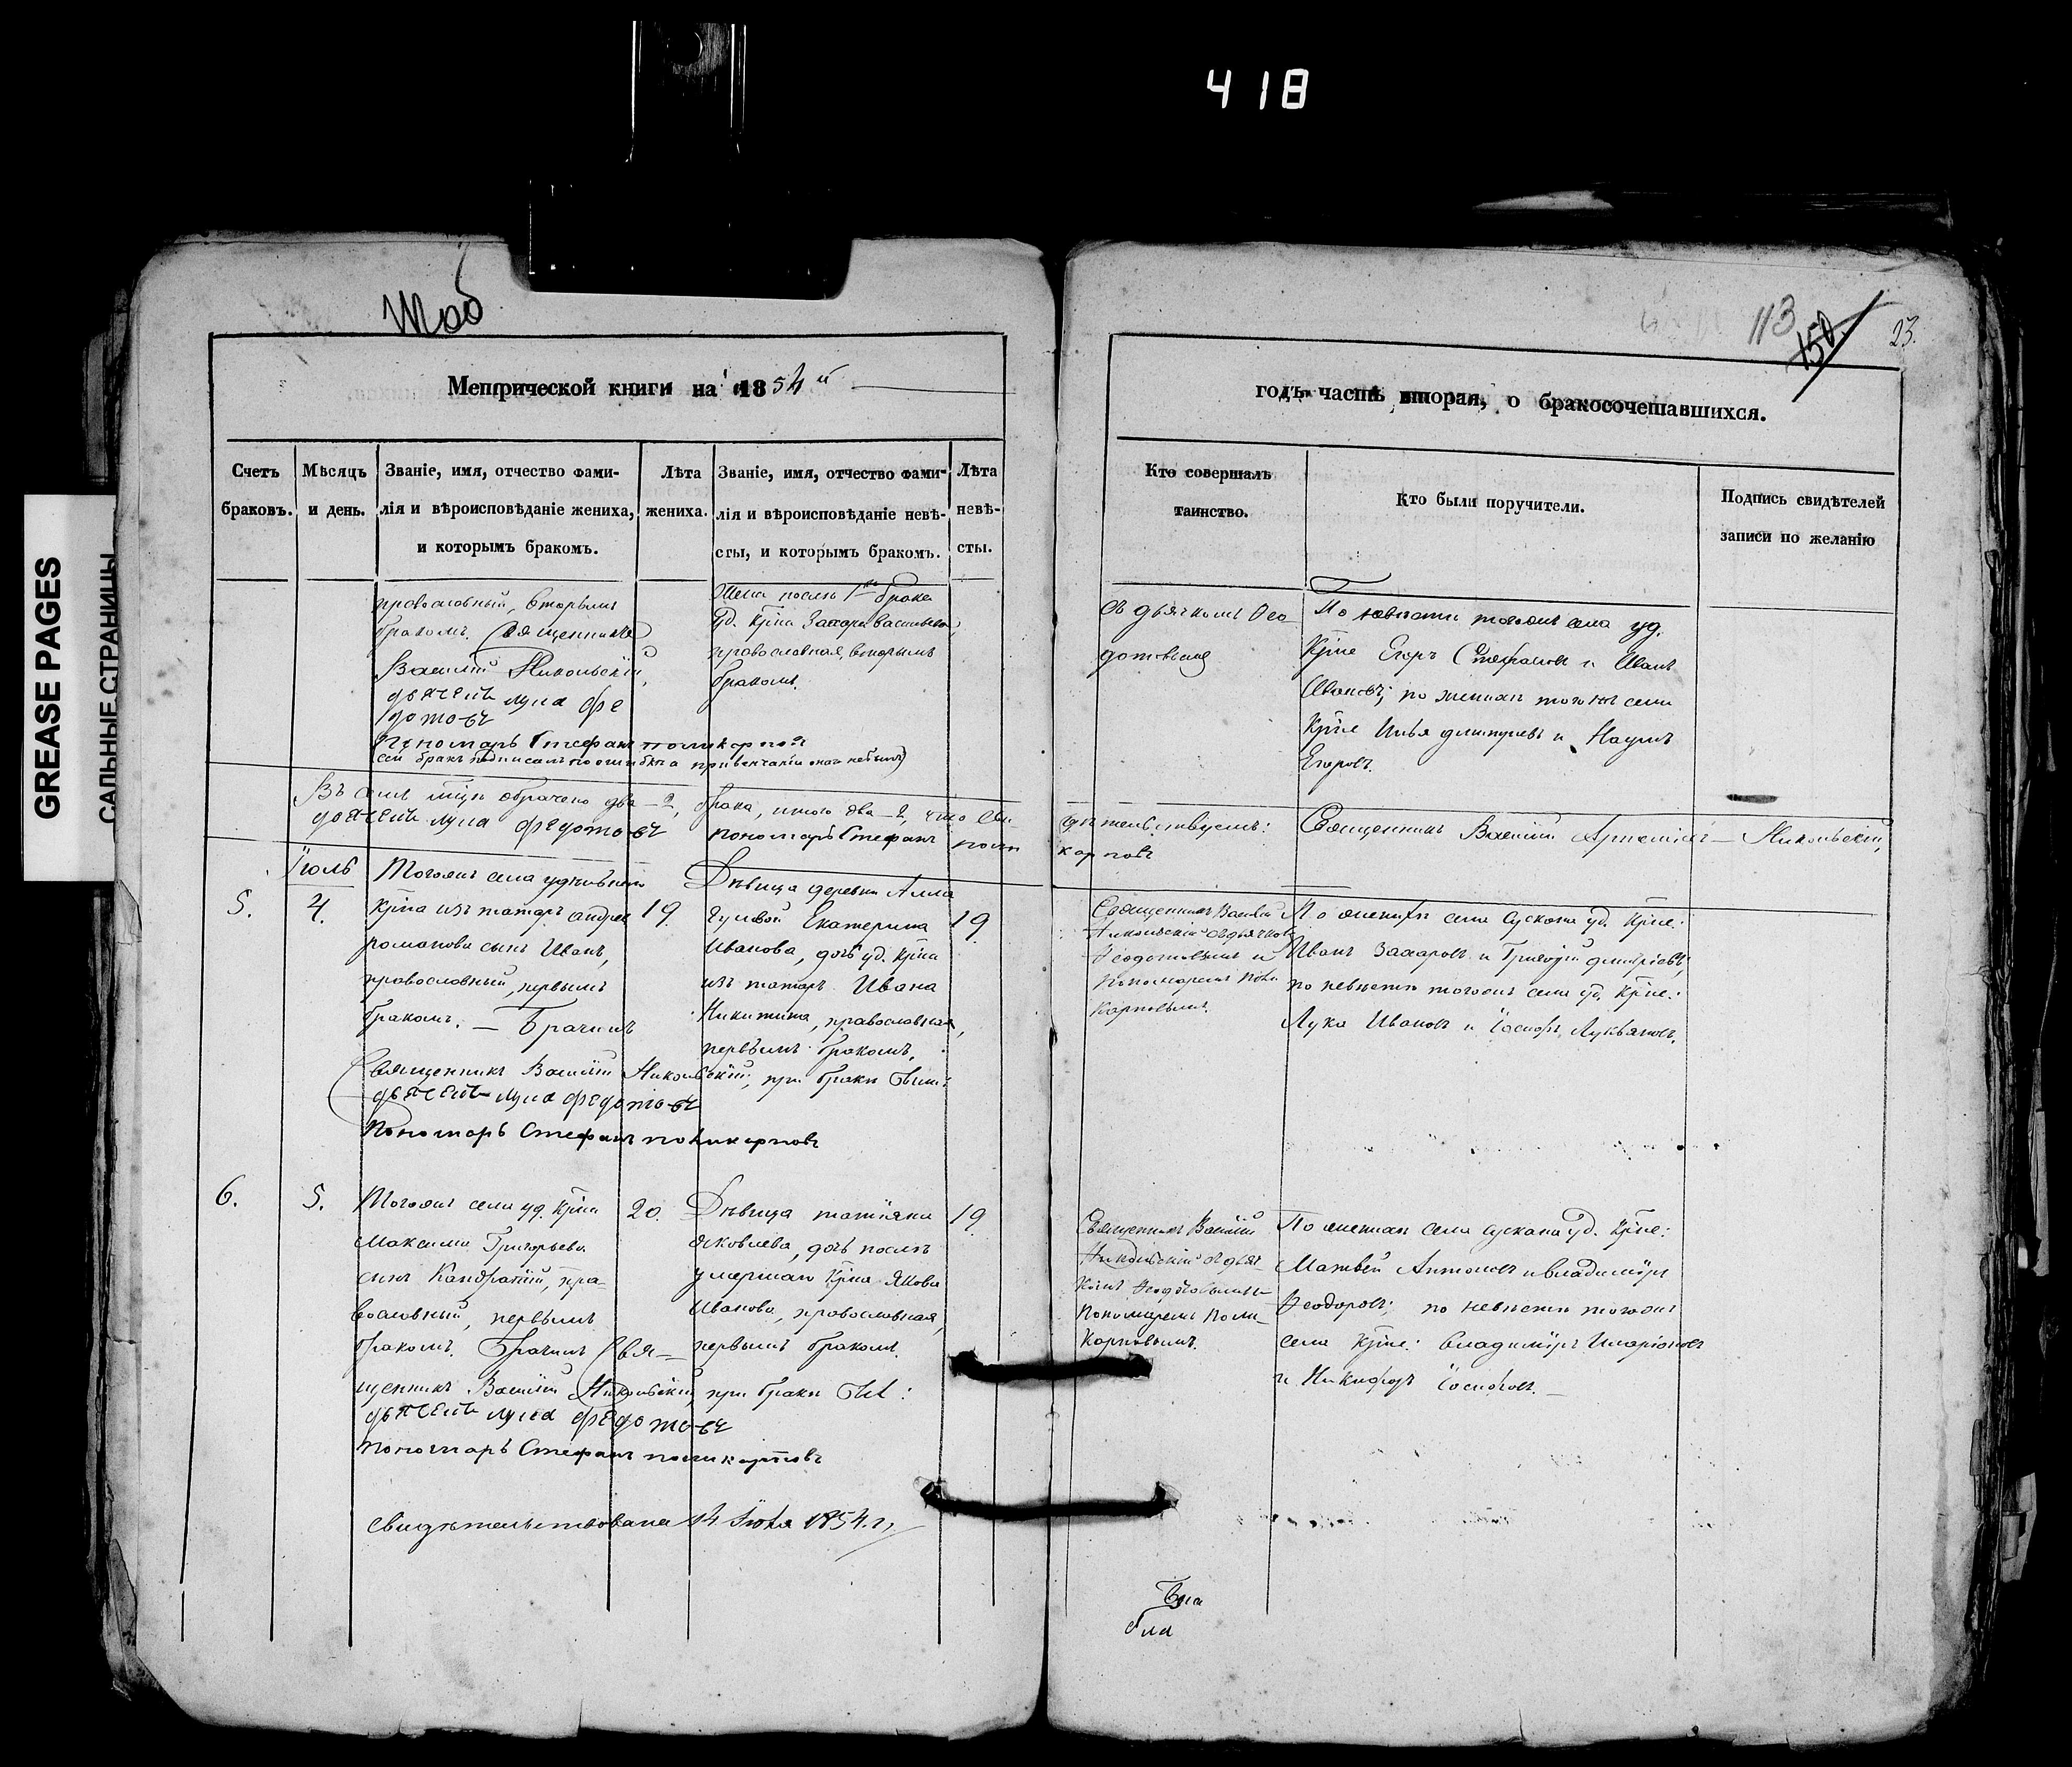 418
GREASE PAGES
САЛЬНЫЕ СТРАНИЦЫ
113
150
23.
Метрической книги на 1854 й
годъ часть вторая, о бракосочетавшихся.
Счетъ браковъ.
Мѣсяцъ и день.
Званіе, имя, отчество фами-
лія и вѣроисповѣданіе жениха,
и которымъ бракомъ.
Лѣта
жениха.
Званіе, имя, отчество фами-
лія и вѣроисповѣданіе невѣ-
сты, и которымъ бракомъ.
Лѣта
невѣ-
сты.
Кто совершалъ
таинство.
Кто были поручители.
Подпись свидѣтелей
записи по желанію
православный, вторымъ
бракомъ. Священникъ
Василий Никольскій,
дьячекъ лука фе
дотовъ
Пономарь Стефанъ поликарпов
сей бракъ подписалъ по ошибке а при венчаніи онаго не былъ)
Жена послѣ 1го брака
уд. кр̃на Захара Васильева,
православная, вторымъ
бракомъ.
съ дьячкомъ Ѳео-
дотовымъ
По невѣсте тогожъ села уд.
кр̃не Егоръ Стефановъ и Иванъ
Ивановъ; по женихѣ тогожъ села
кр̃не Илья димитріевъ и Наумъ
Егоровъ.
Въ семъ м̃цѣ обрачено два - 2, брака, итого два - 2, что сви-
дѣтельствуемъ: Священникъ Василий Никольскій,
дьячекъ лука федотовъ пономарь Стефанъ поли
карповъ
Іюль
5.
4.
Тогожъ села удѣльнаго
кр̃на изъ татаръ андрея
романова сынъ Иванъ,
православный, первымъ
бракомъ. — Брачилъ
19.
Дѣвица деревни
Екатерина
Иванова, дочь уд. кр̃на
изъ татаръ Ивана
Никитина, православная,
первымъ бракомъ.
19.
Священникъ Василій Никольскій, при бракѣ были:
дьячекъ лука федотовъ
Пономарь Стефанъ поликарповъ
Священникъ Василій
Никольскій съ дьячкомъ
Ѳеодотовымъ и
пономаремъ Поли
карповымъ.
По женихѣ села Сускана уд. кр̃не:
Иванъ Захаровъ и Григорій димитріевъ;
по невѣсте тогожъ села уд. кр̃не:
Лука Ивановъ и Іосифъ Лукьяновъ.
6.
5.
Тогожъ села уд. кр̃на
Максима Григорьева
сынъ Кандратій, пра-
вославный, первымъ
бракомъ. Брачилъ Свя-
щенникъ Василій Никольскій, при бракѣ
дьячекъ лука федотовъ
пономарь Стефанъ поликарповъ
20.
Дѣвица татіяна
Яковлева, дочь послѣ
умершаго кр̃на Якова
Иванова, православная,
первымъ бракомъ.
19.
Священникъ Василій
Никольскій съ дьяч-
комъ Ѳеодотовымъ и
Пономаремъ Поли-
карповымъ.
По женихѣ села сускана уд. кр̃не:
Матвей Антоновъ и владимиръ
Ѳеодоровъ; по невѣсте тогожъ
села кр̃не: Владимиръ Иларіоновъ
и Никифоръ Іосифовъ.
свидѣтельствована 14 Іюля 1854. г.